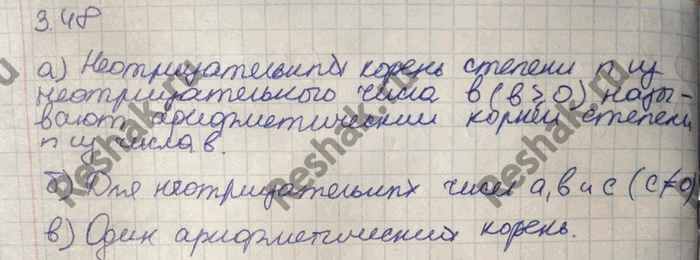 3.48
а) Неотрицательный корень степени n из
неотрицательного числа в (в ≥ 0) назы-
вают арифметический корнем степени
n из числа в.
б) Для неотрицательных чисел а, в и с (с ≠ 0)
в) Один арифметический корень.
Reshak.ru
Reshak.ru
Reshak.ru